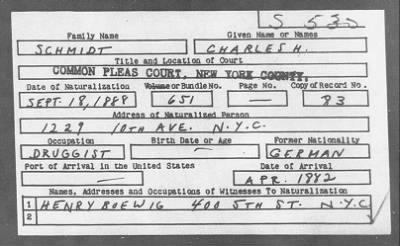 S 530
Family Name Given Name or Names
SCHMIDT CHARLES H.
Title and Location of Court
COMMON PLEAS COURT, NEW YORK COUNTY.
Date of Naturalization Volume or Bundle No. Page No. Copy of Record No.
SEPT. 18, 1888 651 — 83
Address of Naturalized Person
1229 10TH AVE. N.Y.C.
Occupation Birth Date or Age Former Nationality
DRUGGIST — GERMAN
Port of Arrival in the United States Date of Arrival
— APR. 1882
Names, Addresses and Occupations of Witnesses To Naturalization
1 HENRY ROEWIG 400 5TH ST. N.Y.C
2